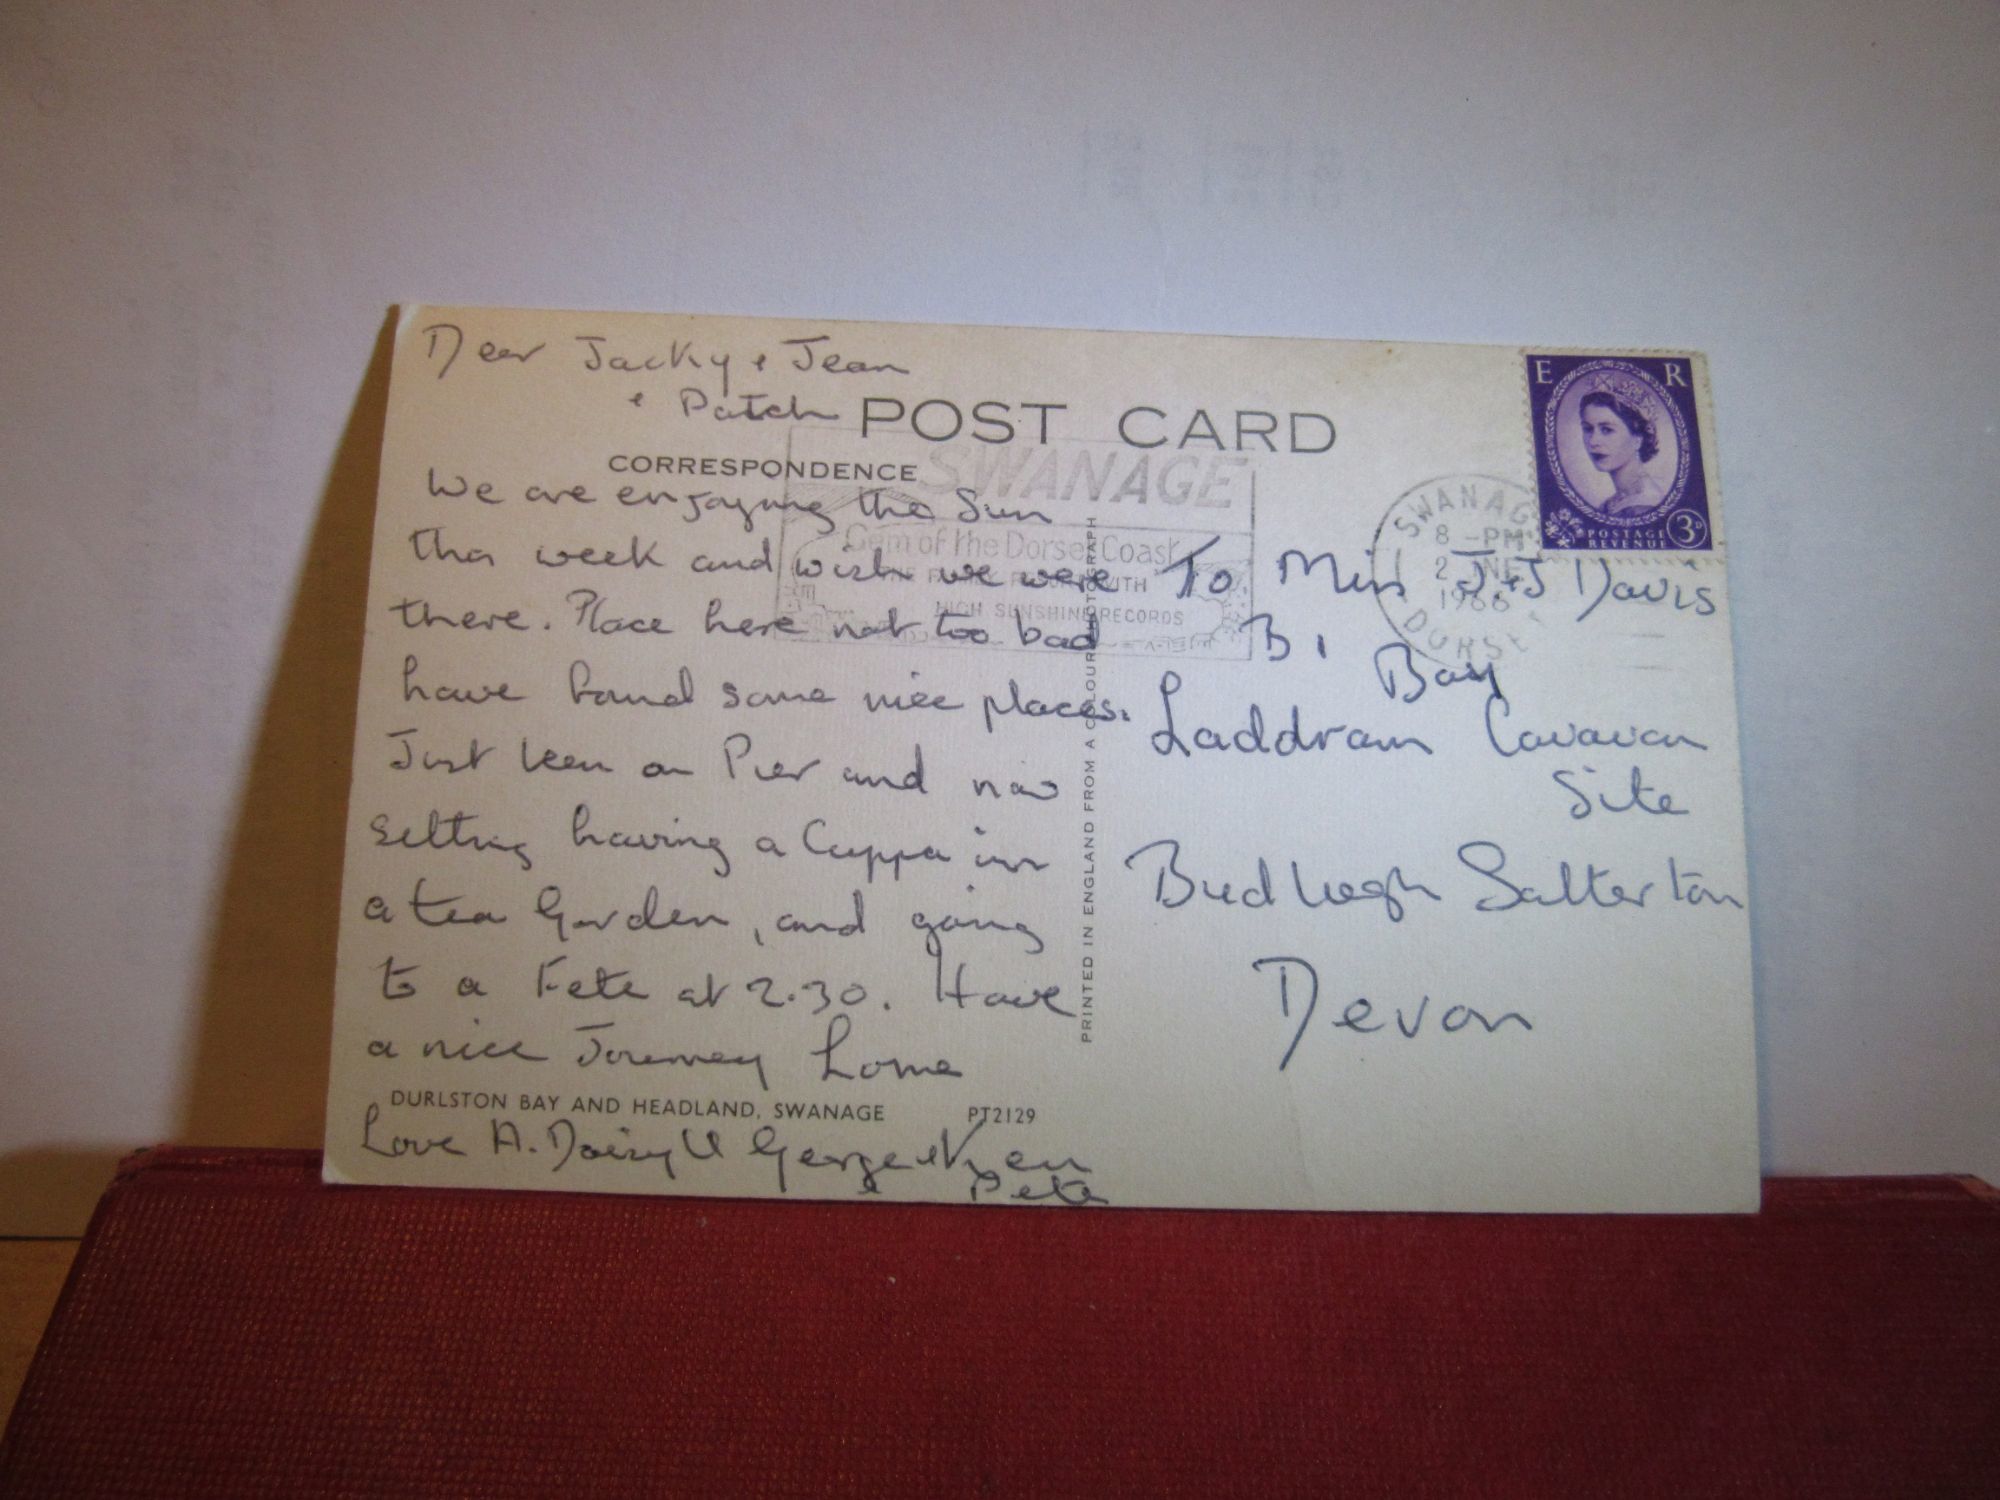 Dear Jacky & Jean
& Patch
POST CARD
CORRESPONDENCE
We are enjoying the Sun
this week and wish we were
there. Place here not too bad
have found some nice places.
Just been on Pier and now
setting having a Cuppa in
a tea Garden, and going
to a Fete at 2.30. Have
a nice Journey home
DURLSTON BAY AND HEADLAND, SWANAGE PT2129
Love A. Daisy U George & Ken
Pete
PRINTED IN ENGLAND FROM A COLOUR PHOTOGRAPH
SWANAGE
Gem of the Dorset Coast
WITH
HIGH SUNSHINE RECORDS
SWANAG
8 -PM
2 JNE
1966
DORSE
E R
POSTAGE
REVENUE
3D
To Miss J.&J Davis
B1
Bay
Laddram Caravan
Site
Budleigh Salterton
Devon